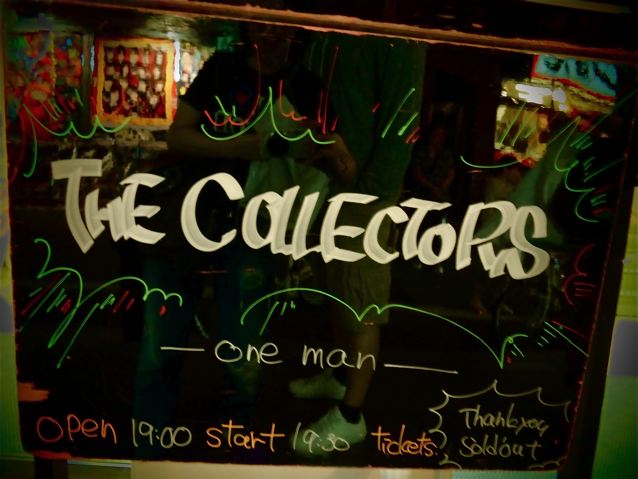 THE COLLECTORS
— one man —
open 19:00 start 19:30 tickets. Thank you
Soldout